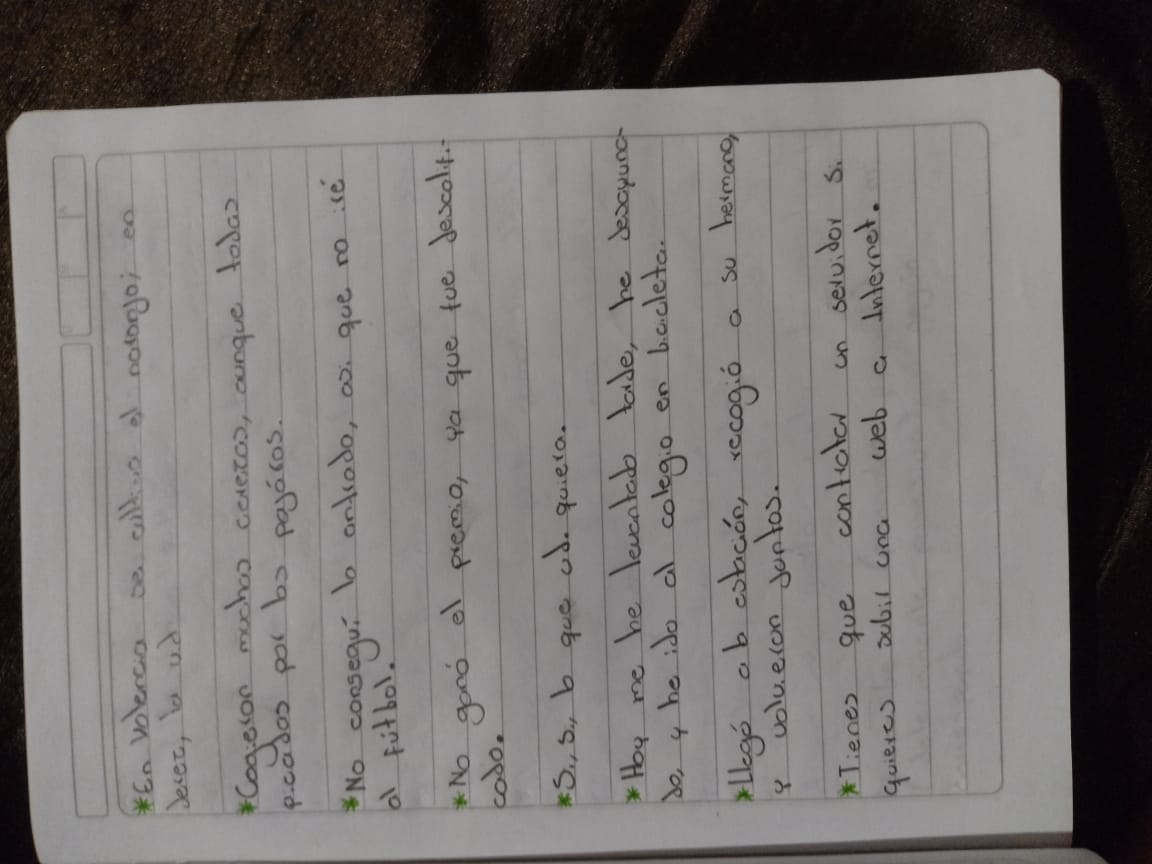 *En Valencia se cultiva el naranjo; en
Jerez, la vid
*Cogieron muchas cerezas, aunque todas
picadas por los pajáros.
*No conseguí la entrada, asi que no iré
al fútbol.
*No ganó el premio, ya que fue descalifi-
cado.
*Si, si, lo que ud. quiera.
*Hoy me he levantado tarde, he desayuna-
do, y he ido al colegio en bicicleta.
*Llegó a la estación, recogió a su hermano,
y volvieron juntos.
*Tienes que contratar un servidor si
quieres subir una web a Internet.